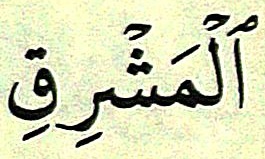 ٱلْمَشْرِقِ